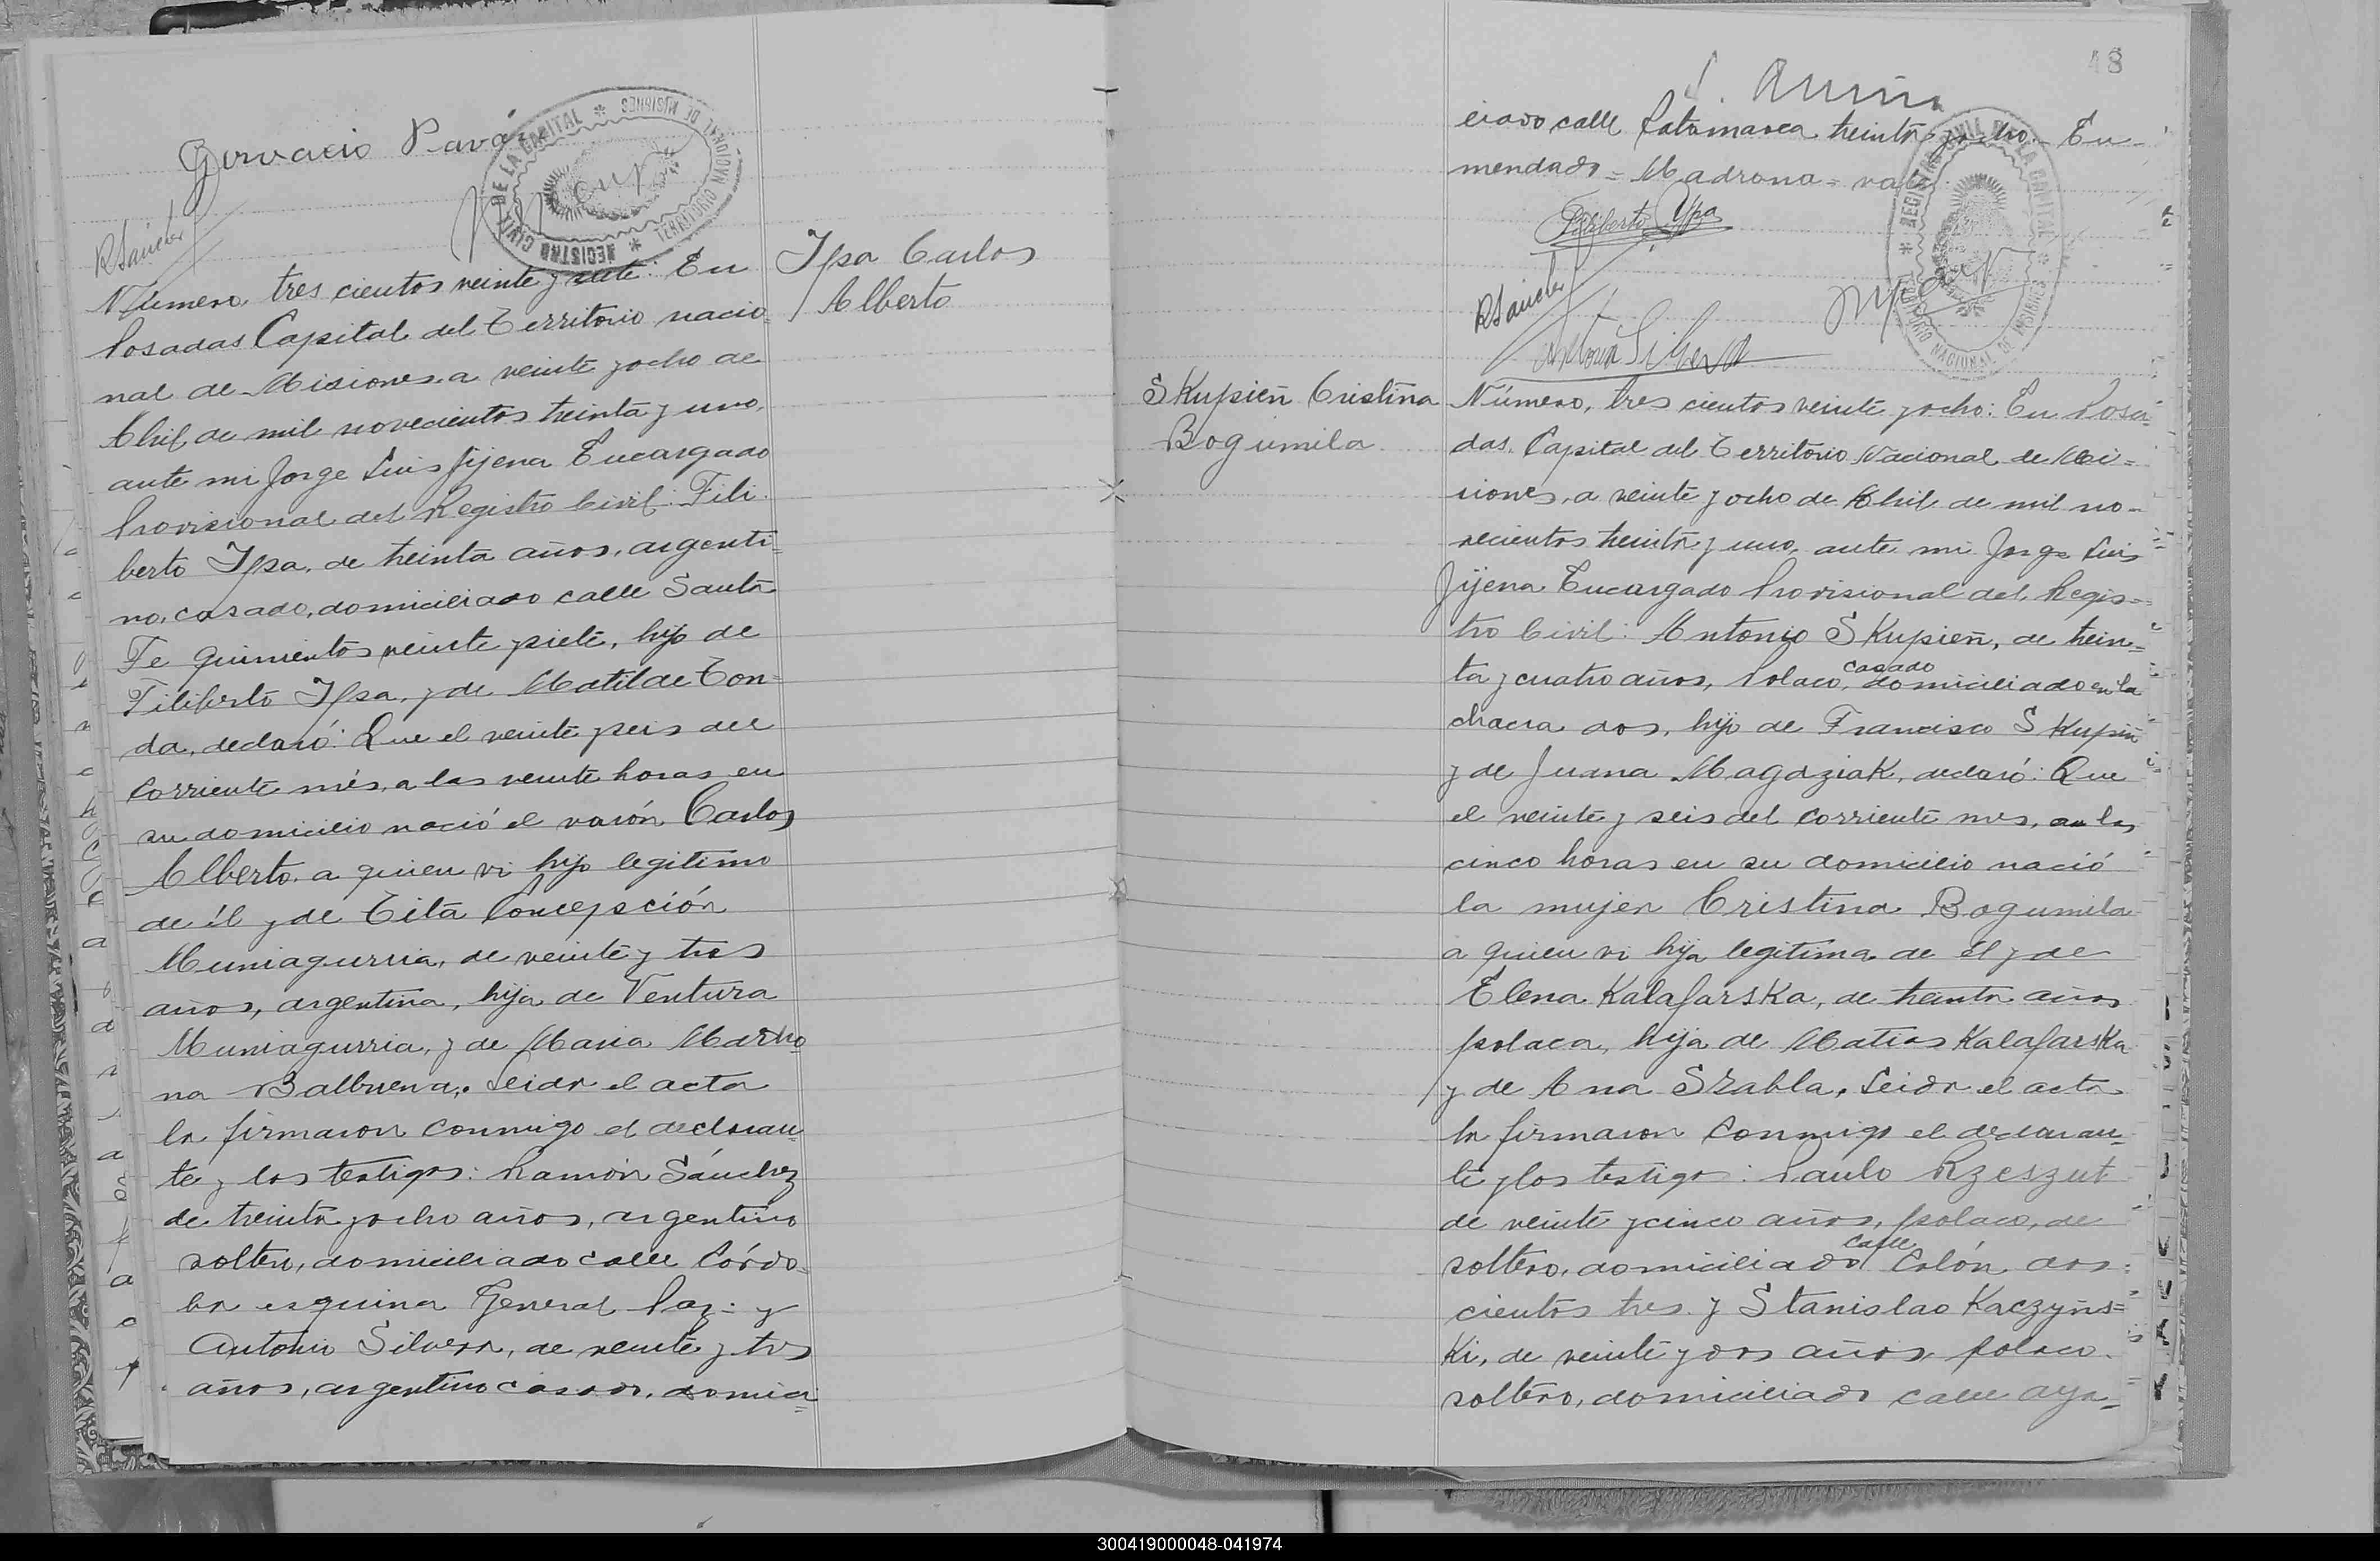 Gervacio Pavón
REGISTRO CIVIL DE LA CAPITAL * TERRITORIO NACIONAL DE MISIONES *
RSánchez
Número, tres cientos veinte y siete: En
Posadas Capital del Territorio nacio=
nal de Misiones a veinte y ocho de
Abril de mil novecientos treinta y uno,
ante mi Jorge Luis Jijena Encargado
Provisional del Registro Civil: Fili
berto Ipsa, de treinta años, argenti=
no, casado, domiciliado calle Santa
Fe quinientos veinte y siete, hijo de
Filiberto Ipsa, y de Matilde Ton=
da, declaró: Que el veinte y seis del
corriente més, a las veinte horas en
su domicilio nació el varón Carlos
Alberto, a quien vi hijo legitimo
de él y de Tita Concepción
Muniagurria, de veinte y tres
años, argentina, hija de Ventura
Muniagurria, y de Maria Madro
na Balbuena. Leida el acta
la firmaron conmigo el declaran=
te y los testigos: Ramón Sánchez
de treinta y ocho años, argentino
soltero, domiciliado calle Córdo=
ba esquina General Paz: y
Antonio Silvera, de veinte y tres
años, argentino casado, domici=
Ipsa Carlos
Alberto
48
ciado calle Catamarca treinta y ocho.- En-
mendado = Madrona = vale.
Filiberto Ypsa
RSánchez
Antonio Silvera
REGISTRO CIVIL DE LA CAPITAL * TERRITORIO NACIONAL DE MISIONES *
SKupień Cristina
Bogumila
Número, tres cientos veinte y ocho: En Posa=
das, Capital del Territorio Nacional de Mi=
siones, a veinte y ocho de Abril de mil no-
vecientos treinta y uno, ante mi Jorge Luis
Jijena Encargado Provisional del Regis=
tro Civil: Antonio SKupień, de trein=
ta y cuatro años, Polaco, casado domiciliado en la
chacra dos, hijo de Francisco SKupień
y de Juana Magdziak, declaró: Que
el veinte y seis del corriente mes, a las
cinco horas en su domicilio nació
la mujer Cristina Bogumila
a quien vi hija legitima de él y de
Elena Kalafarska, de treinta años
polaca, hija de Matias Kalafarska
y de Ana Szabla. Leida el acta
la firmaron conmigo el declaran=
te y los testigos: Paulo Rzeszut
de veinte y cinco años, polaco, de
soltero, domiciliado calle Colón dos=
cientos tres y Stanislao Kaczyñs=
Ki, de veinte y dos años, polaco.
soltero, domiciliado calle Aya=
300419000048-041974